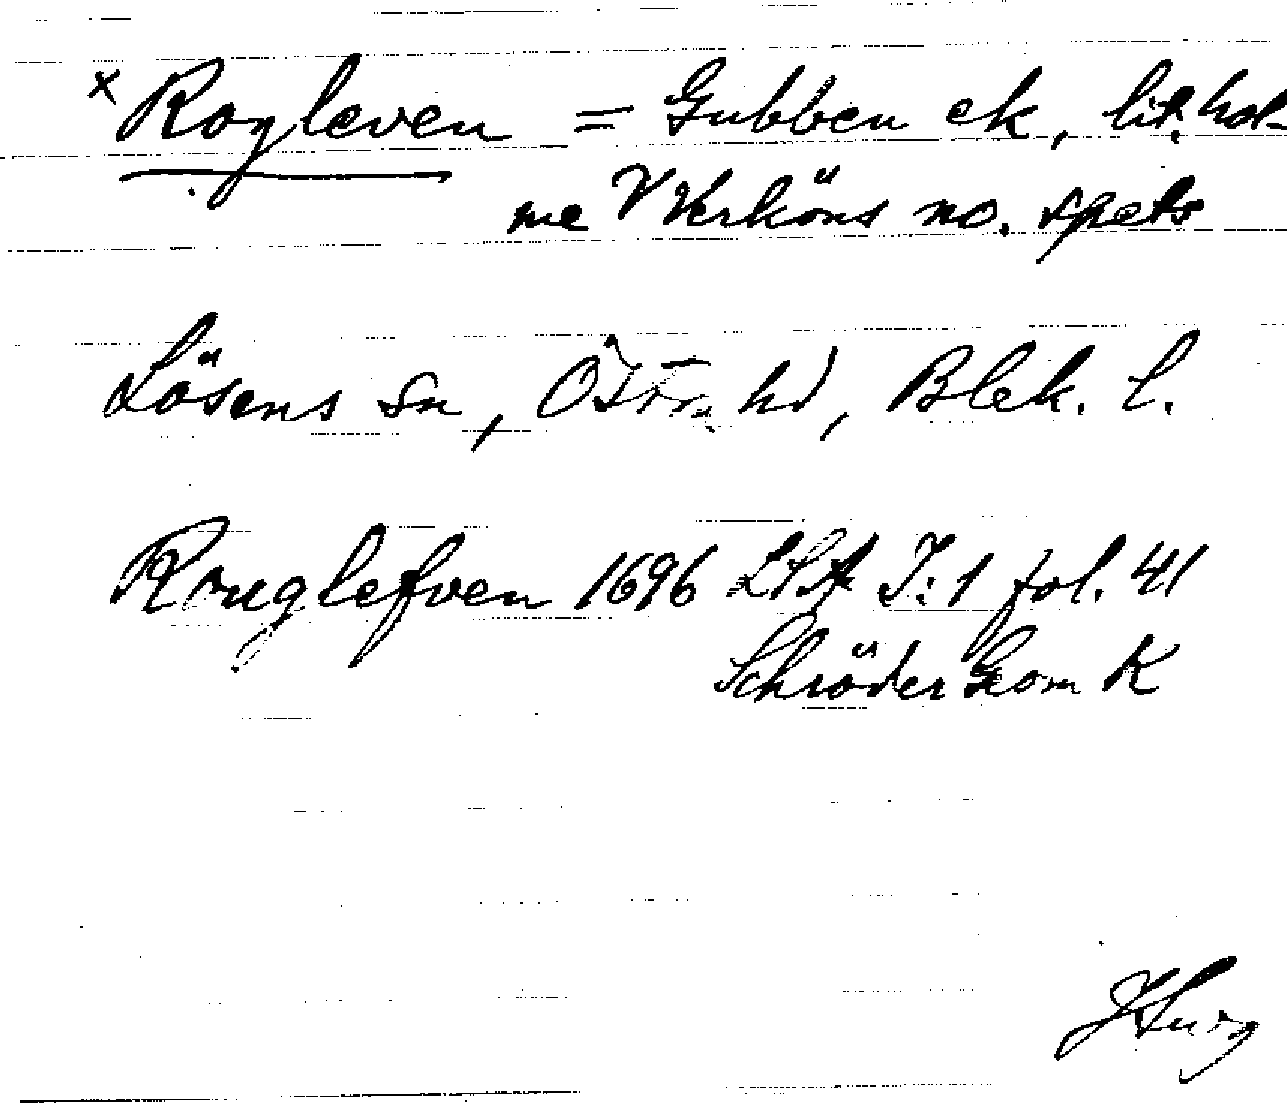 x Rogleven = Gubben ek, lit. hol-
me V Verköns no. spets
Lösens sn, Östra hd, Blek. l.
Rouglefven 1696 LSA I:1 fol. 41
Schröder Gom K